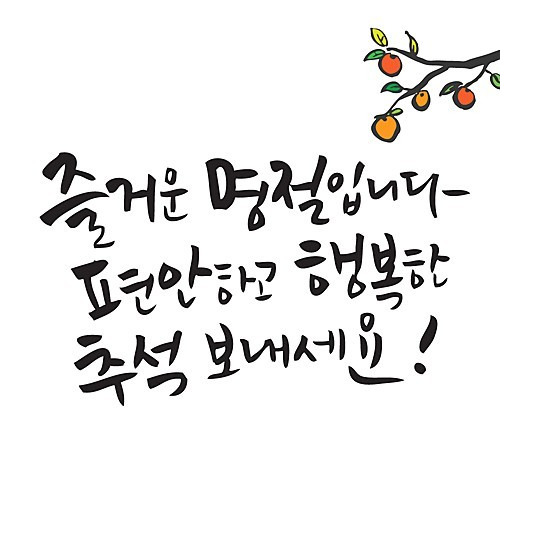 즐거운 명절입니다~
편안하고 행복한
추석 보내세요!